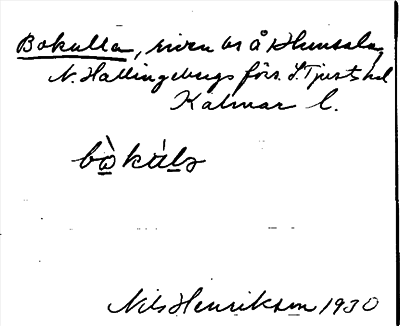 Bokulla, riven bs å Hunsala,
N. Hallingebergs förs. S. Tjusts hd
Kalmar l.
bò̱kúḻꝛ
Nils Henrikson 1930